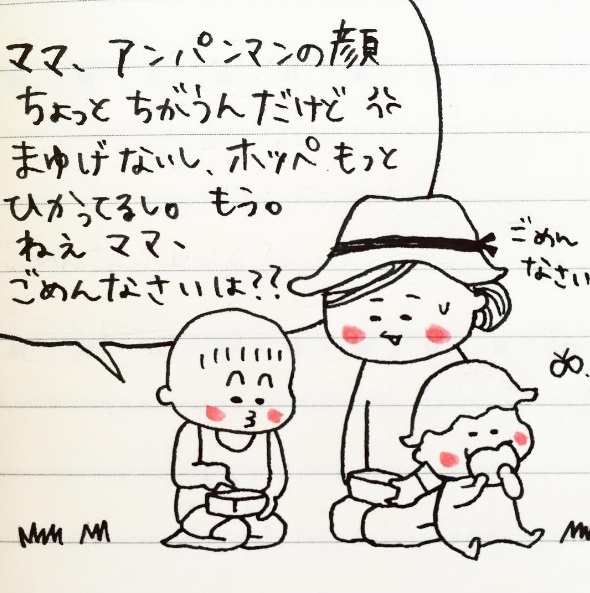 ママ、アンパンマンの顔
ちょっとちがうんだけど
まゆげないし、ホッペもっと
ひかってるし。もう。
ねぇママ、
ごめんなさいは??
ごめん
なさい
ぬ.